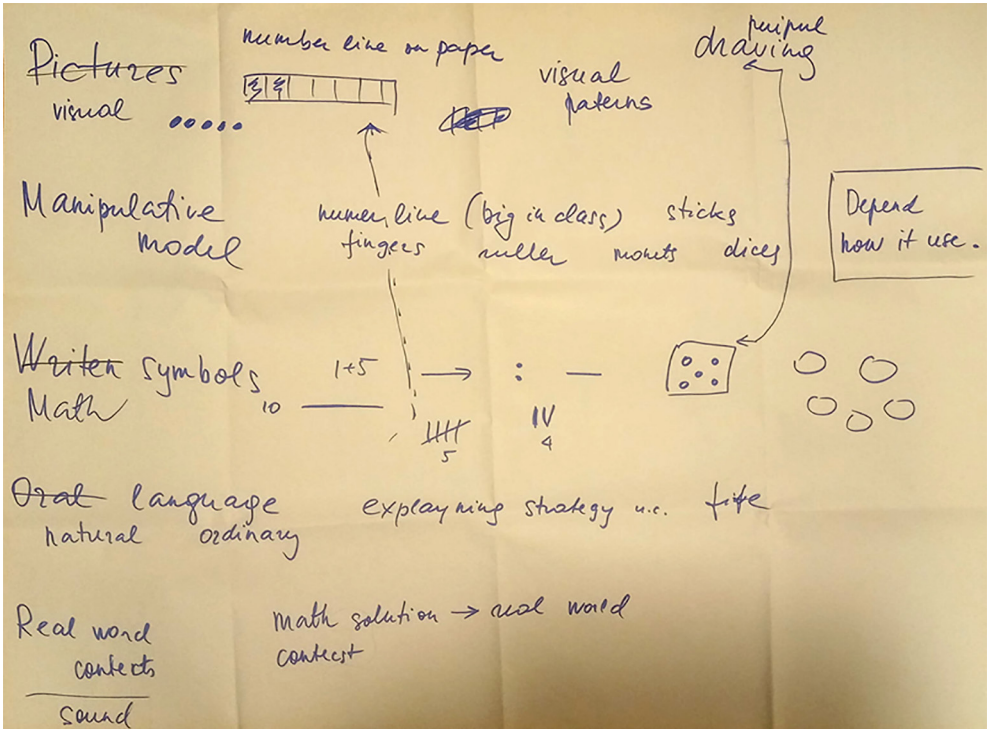 Pictures
visual
number line on paper
visual
paterns
puipul
draving
Manipulative
model
numer line (big in class) sticks
fingers ruller monets dices
Depend
how it use.
Writen symbols
Math
10
1+5
:
—
5
IV
4
Oral language
natural ordinary
explayning strategy
Real word
contexts
sound
math solution → real world